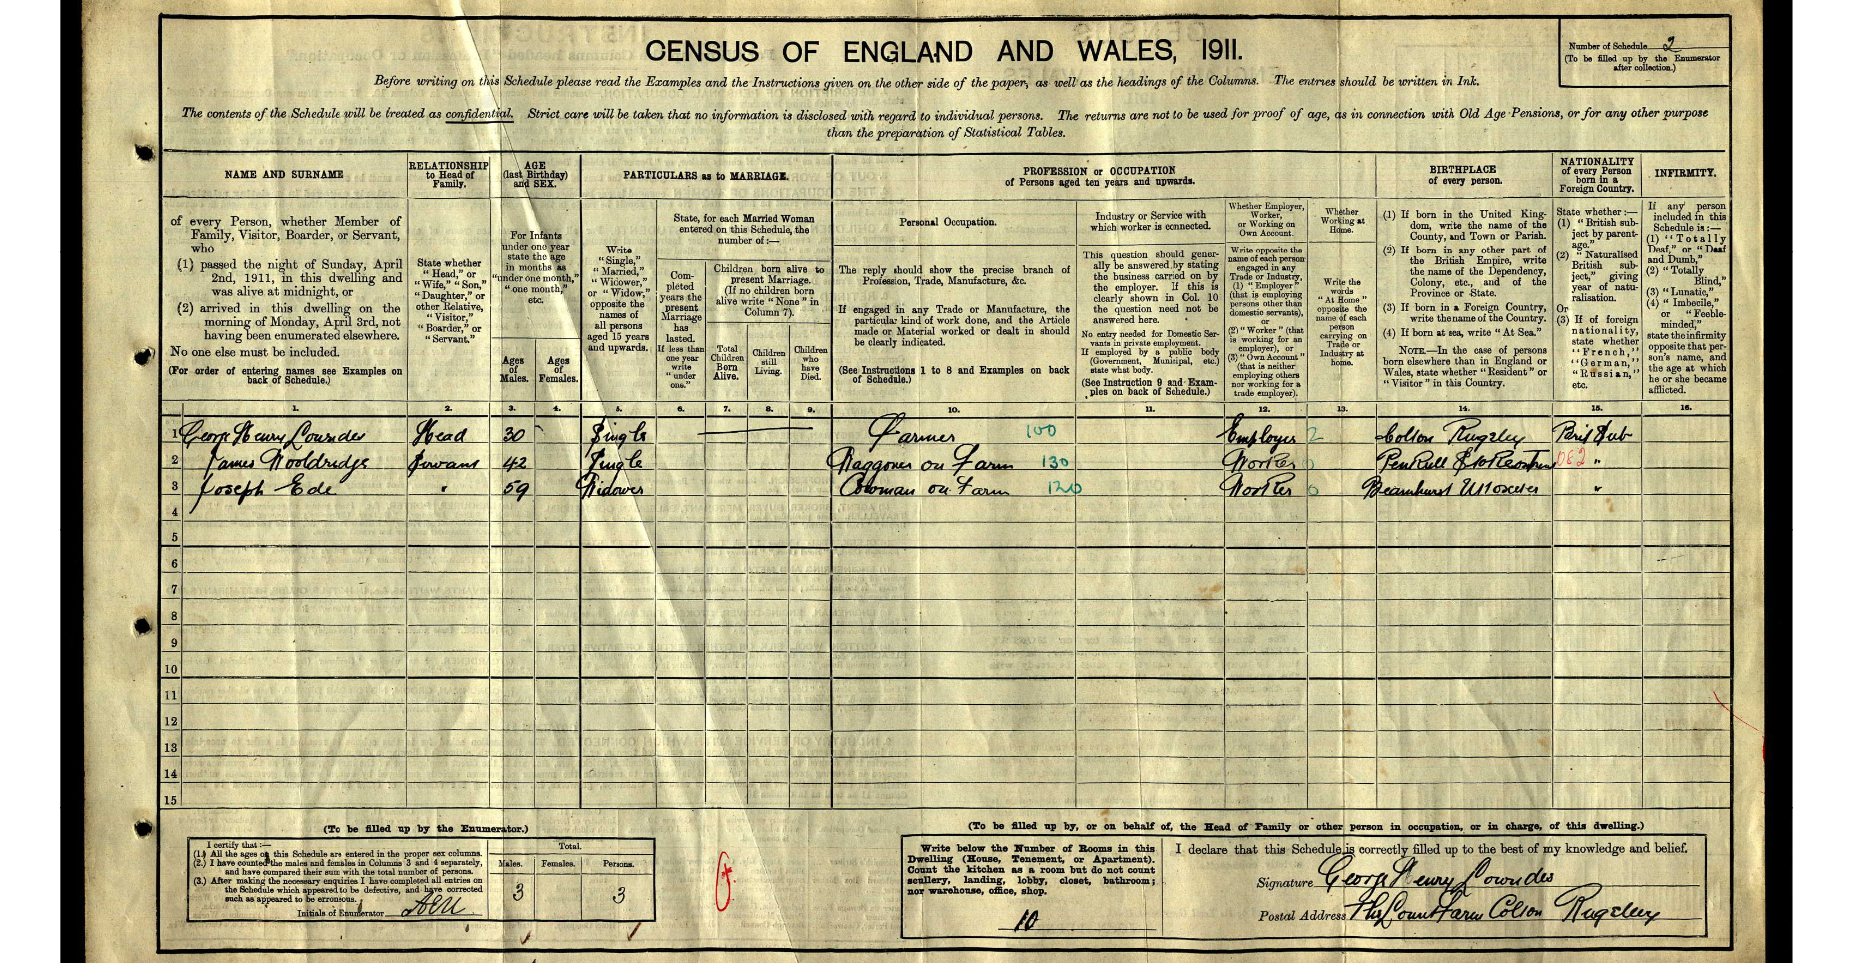 CENSUS OF ENGLAND AND WALES, 1911.
Number of Schedule 2
(To be filled up by the Enumerator after collection.)
Before writing on this Schedule please read the Examples and the Instructions given on the other side of the paper, as well as the headings of the Columns. The entries should be written in Ink.
The contents of the Schedule will be treated as confidential. Strict care will be taken that no information is disclosed with regard to individual persons. The returns are not to be used for proof of age, as in connection with Old Age Pensions, or for any other purpose
than the preparation of Statistical Tables.
NAME AND SURNAME
RELATIONSHIP to Head of Family.
AGE (last Birthday) and SEX.
PARTICULARS as to MARRIAGE.
PROFESSION or OCCUPATION
of Persons aged ten years and upwards.
BIRTHPLACE
of every person.
NATIONALITY of every Person born in a Foreign Country.
INFIRMITY.
of every Person, whether Member of
Family, Visitor, Boarder, or Servant,
who
(1) passed the night of Sunday, April
2nd, 1911, in this dwelling and
was alive at midnight, or
(2) arrived in this dwelling on the
morning of Monday, April 3rd, not
having been enumerated elsewhere.
No one else must be included.
(For order of entering names see Examples on
back of Schedule.)
State whether
"Head," or
"Wife," "Son,"
"Daughter," or
other Relative,
"Visitor,"
"Boarder," or
"Servant."
For Infants
under one year
state the age
in months as
"under one month,"
"one month,"
etc.
Ages of Males.
Ages of Females.
Write
"Single,"
"Married,"
"Widower,"
or "Widow,"
opposite the
names of
all persons
aged 15 years
and upwards.
State, for each Married Woman
entered on this Schedule, the
number of:—
Completed years the present Marriage has lasted.
If less than one year write "under one."
Children born alive to
present Marriage.
(If no children born
alive write "None" in
Column 7).
Total Children Born Alive.
Children still Living.
Children who have Died.
Personal Occupation.
The reply should show the precise branch of
Profession, Trade, Manufacture, &c.
If engaged in any Trade or Manufacture, the
particular kind of work done, and the Article
made or Material worked or dealt in should
be clearly indicated.
(See Instructions 1 to 8 and Examples on back
of Schedule.)
Industry or Service with
which worker is connected.
This question should gener-
ally be answered by stating
the business carried on by
the employer. If this is
clearly shown in Col. 10
the question need not be
answered here.
No entry needed for Domestic Ser-
vants in private employment.
If employed by a public body
(Government, Municipal, etc.)
state what body.
(See Instruction 9 and Exam-
ples on back of Schedule.)
Whether Employer,
Worker,
or Working on
Own Account.
Write opposite the
name of each person
engaged in any
Trade or Industry,
(1) "Employer"
(that is employing
persons other than
domestic servants),
or
(2) "Worker" (that
is working for an
employer), or
(3) "Own Account"
(that is neither
employing others
nor working for a
trade employer).
Whether
Working at
Home.
Write the
words
"At Home"
opposite the
name of each
person
carrying on
Trade or
Industry at
home.
(1) If born in the United King-
dom, write the name of the
County, and Town or Parish.
(2) If born in any other part of
the British Empire, write
the name of the Dependency,
Colony, etc., and of the
Province or State.
(3) If born in a Foreign Country,
write the name of the Country.
(4) If born at sea, write "At Sea."
NOTE.—In the case of persons
born elsewhere than in England or
Wales, state whether "Resident" or
"Visitor" in this Country.
State whether:—
(1) "British sub-
ject by parent-
age."
(2) "Naturalised
British sub-
ject," giving
year of natu-
ralisation.
Or
(3) If of foreign
nationality,
state whether
"French,"
"German,"
"Russian,"
etc.
If any person
included in this
Schedule is:—
(1) "Totally
Deaf," or "Deaf
and Dumb,"
(2) "Totally
Blind,"
(3) "Lunatic,"
(4) "Imbecile,"
or "Feeble-
minded,"
state the infirmity
opposite that per-
son's name, and
the age at which
he or she became
afflicted.
1. 2. 3. 4. 5. 6. 7. 8. 9. 10. 11. 12. 13. 14. 15. 16.
1 George Henry Lowndes Head 30 Single Farmer 100 Employer 2 Colton Rugeley Brit Sub
2 James Wooldridge Servant 42 Single Waggoner on Farm 130 Worker 0 Penkull 082 "
3 Joseph Ede " 59 Widower Cowman on Farm 120 Worker 0 Beamhurst Uttoxeter "
4
5
6
7
8
9
10
11
12
13
14
15
(To be filled up by the Enumerator.)
I certify that:—
(1.) All the ages on this Schedule are entered in the proper sex columns.
(2.) I have counted the males and females in Columns 3 and 4 separately,
and have compared their sum with the total number of persons.
(3.) After making the necessary enquiries I have completed all entries on
the Schedule which appeared to be defective, and have corrected
such as appeared to be erroneous.
Initials of Enumerator
Total.
Males. Females. Persons.
3 3
(To be filled up by, or on behalf of, the Head of Family or other person in occupation, or in charge, of this dwelling.)
Write below the Number of Rooms in this
Dwelling (House, Tenement, or Apartment).
Count the kitchen as a room but do not count
scullery, landing, lobby, closet, bathroom;
nor warehouse, office, shop.
10
I declare that this Schedule is correctly filled up to the best of my knowledge and belief.
Signature George Henry Lowndes
Postal Address The Lount Farm Colton Rugeley